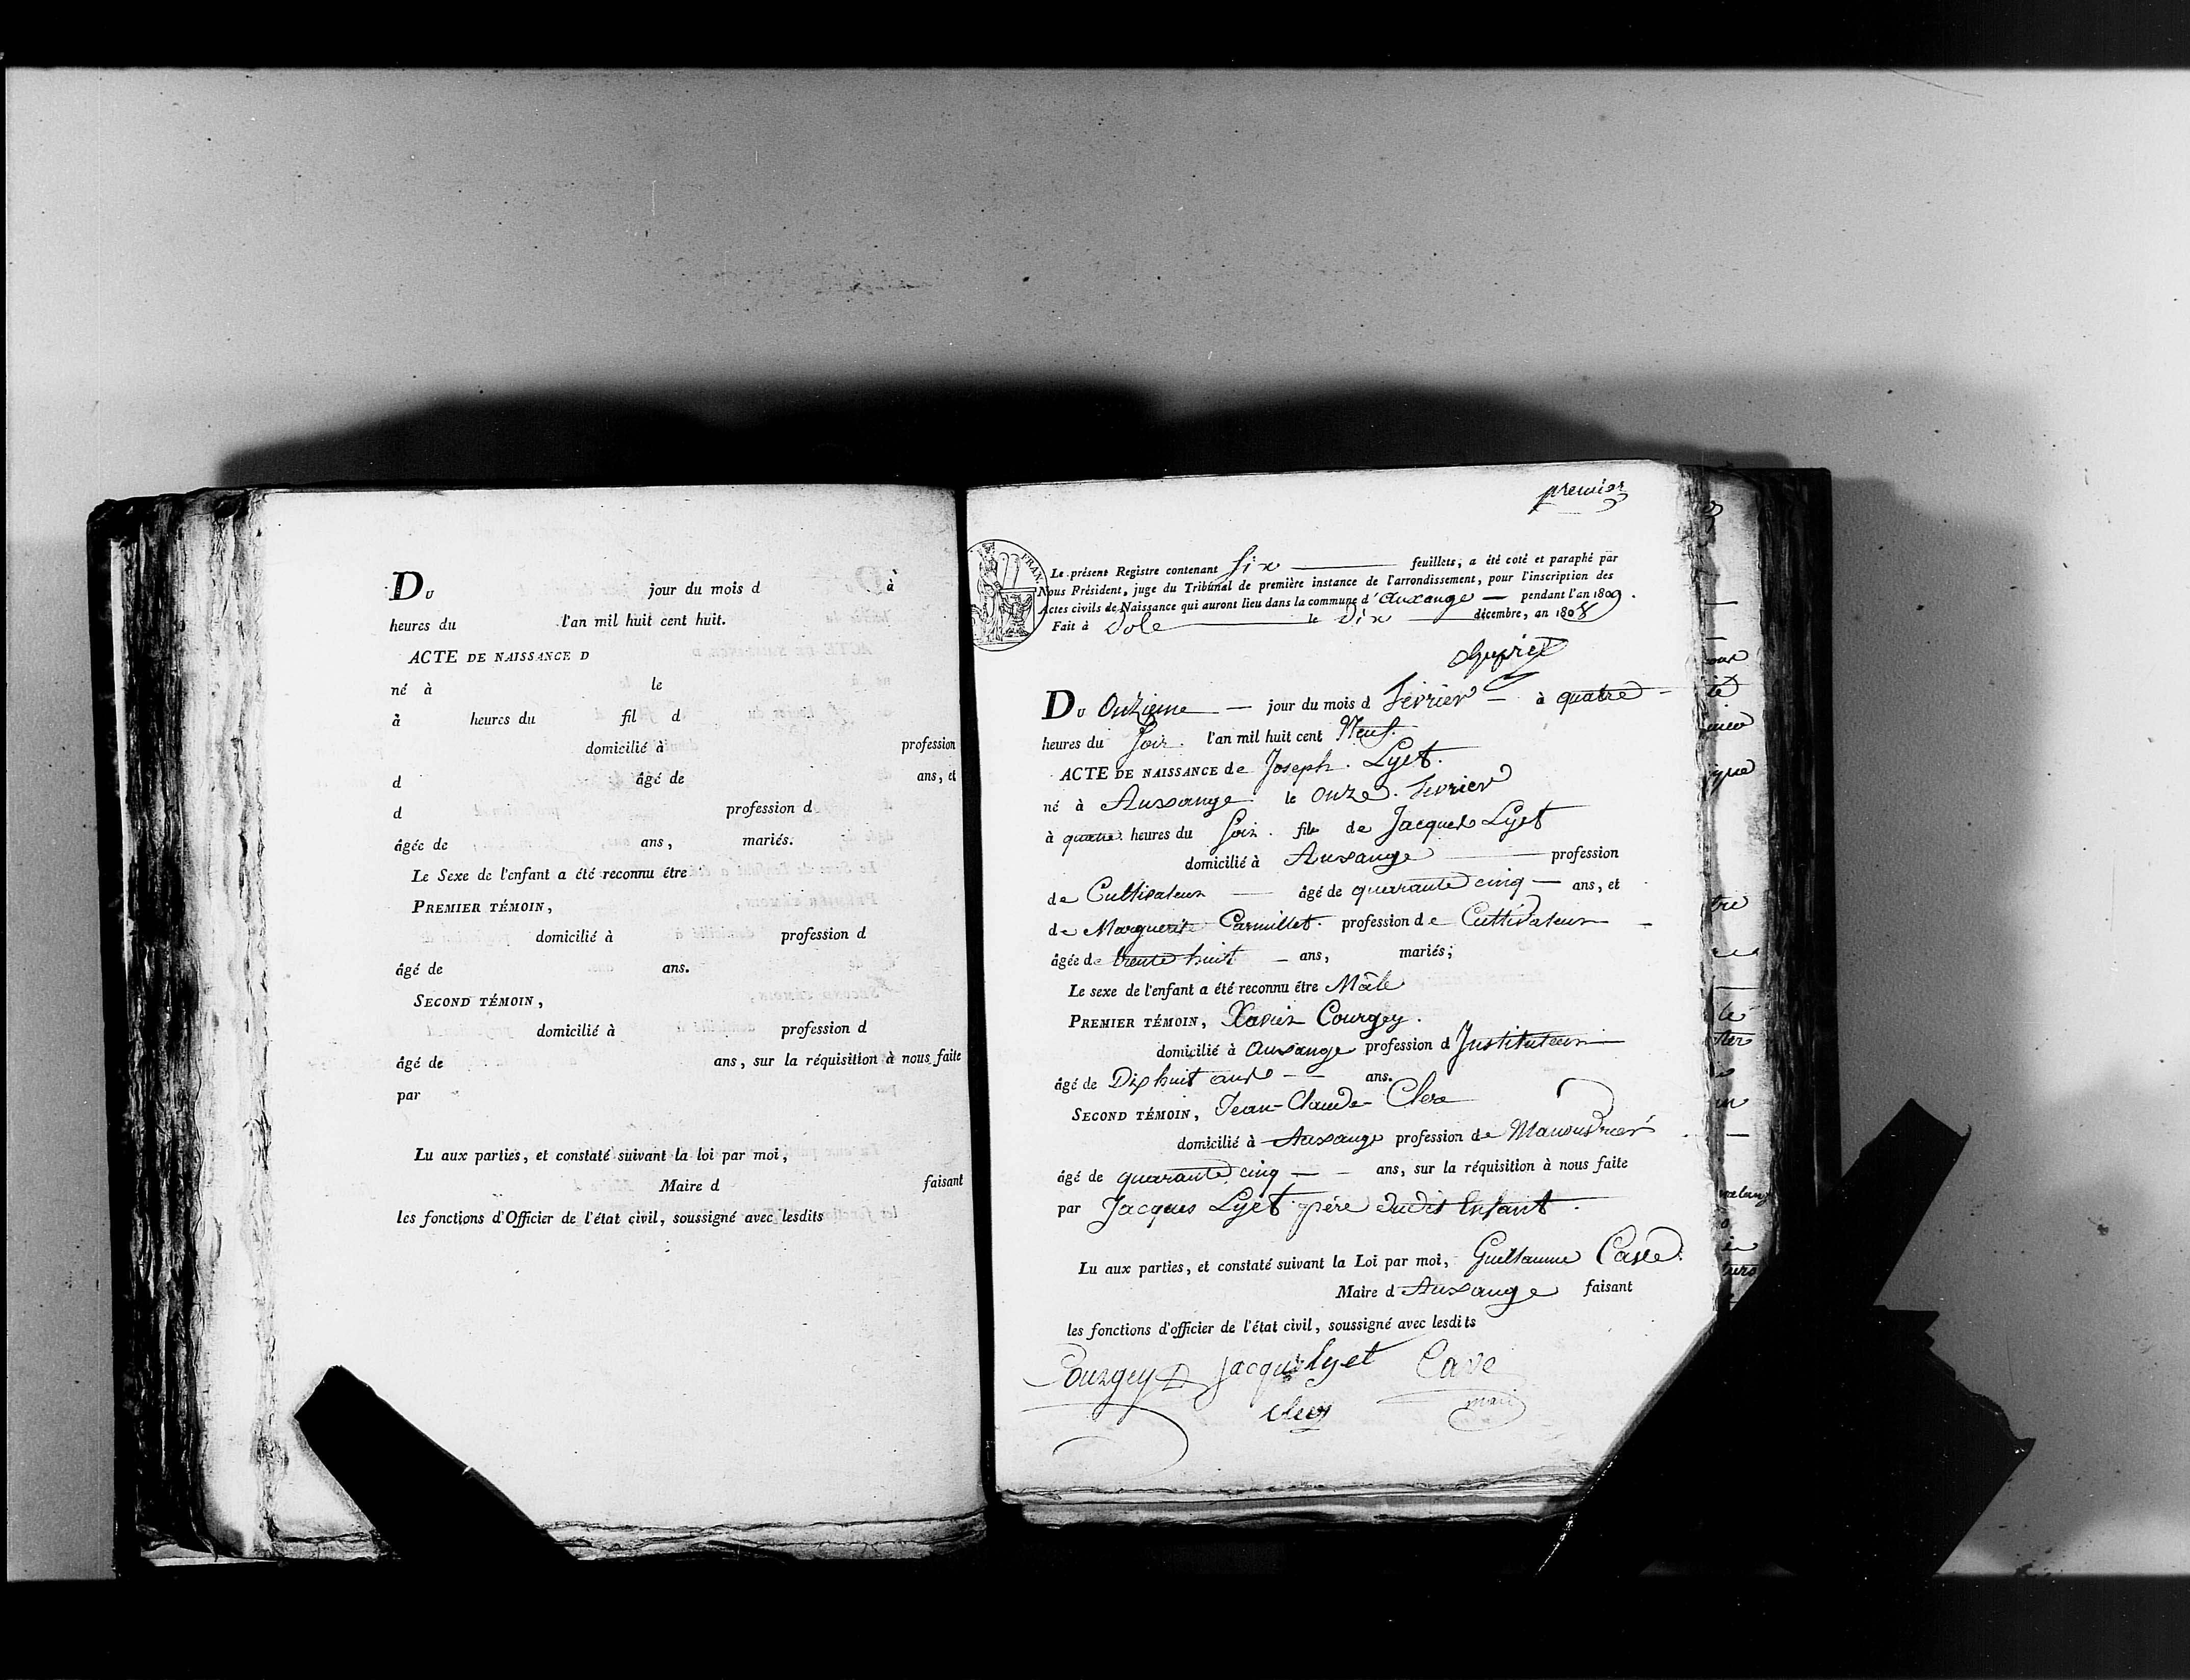 Du jour du mois d à
heures du l'an mil huit cent huit.
ACTE DE NAISSANCE D
né à le
à heures du fil d
domicilié à profession
d âgé de ans, et
d profession d
âgée de ans, mariés.
Le Sexe de l'enfant a été reconnu être
PREMIER TÉMOIN,
domicilié à profession d
âgé de ans.
SECOND TÉMOIN,
domicilié à profession d
âgé de ans, sur la réquisition à nous faite
par
Lu aux parties, et constaté suivant la loi par moi,
Maire d faisant
les fonctions d'Officier de l'état civil, soussigné avec lesdits
premier
FRAN.
Le présent Registre contenant six feuillets, a été coté et paraphé par
Nous Président, juge du Tribunal de première instance de l'arrondissement, pour l'inscription des
Actes civils de Naissance qui auront lieu dans la commune d'Auxange pendant l'an 1809.
Fait à Dole le Dix décembre, an 1808
Du Onzieme jour du mois d fevrier à quatre
heures du Soir l'an mil huit cent Neuf.
ACTE DE NAISSANCE de Joseph Lyet.
né à Auxange le onze fevrier
à quatre heures du Soir fils de Jacques Lyet
domicilié à Auxange profession
de Cultivateur âgé de quarante cinq ans, et
de Marguerite Carmillet profession de Cultivateur
âgée de trente huit ans, mariés;
Le sexe de l'enfant a été reconnu être Mâle
PREMIER TÉMOIN, Xavier Courgey.
domicilié à Auxange profession d Instituteur
âgé de Dix huit ans ans.
SECOND TÉMOIN, Jean-Claude Clerc
domicilié à Auxange profession de Manouvrier
âgé de quarante cinq ans, sur la réquisition à nous faite
par Jacques Lyet père dudit Enfant.
Lu aux parties, et constaté suivant la Loi par moi, Guillaume Cave
Maire d Auxange faisant
les fonctions d'officier de l'état civil, soussigné avec lesdits
Courgey Jacque lyet Cave
clerc mair